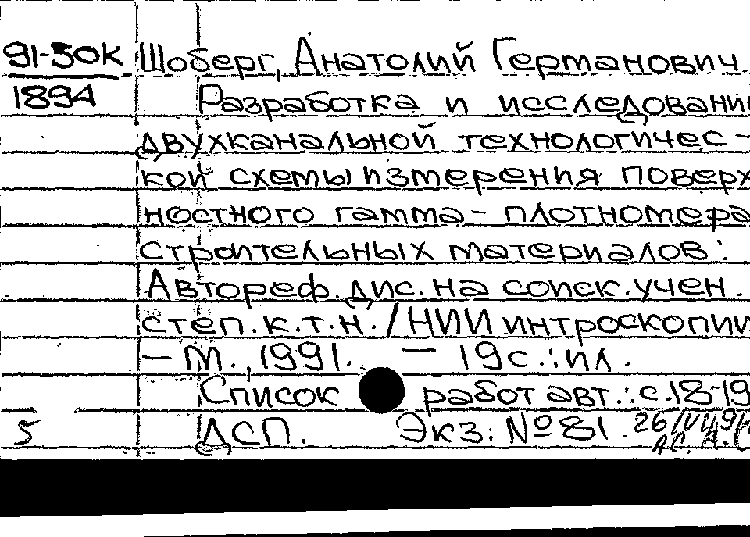 91-50к Шоберг, Анатолий Германович
1894 Разработка и исследовани
двухканальной технологичес-
кой схемы измерения поверх
ностного гамма-плотномера
строительных материалов:
Автореф. дис. на соиск. учен.
степ. к.т.н. / НИИ интроскопии
- М., 1991. - 19с.: ил.
Список работ авт.: с.18-19
5 ДСП. Экз. №81.